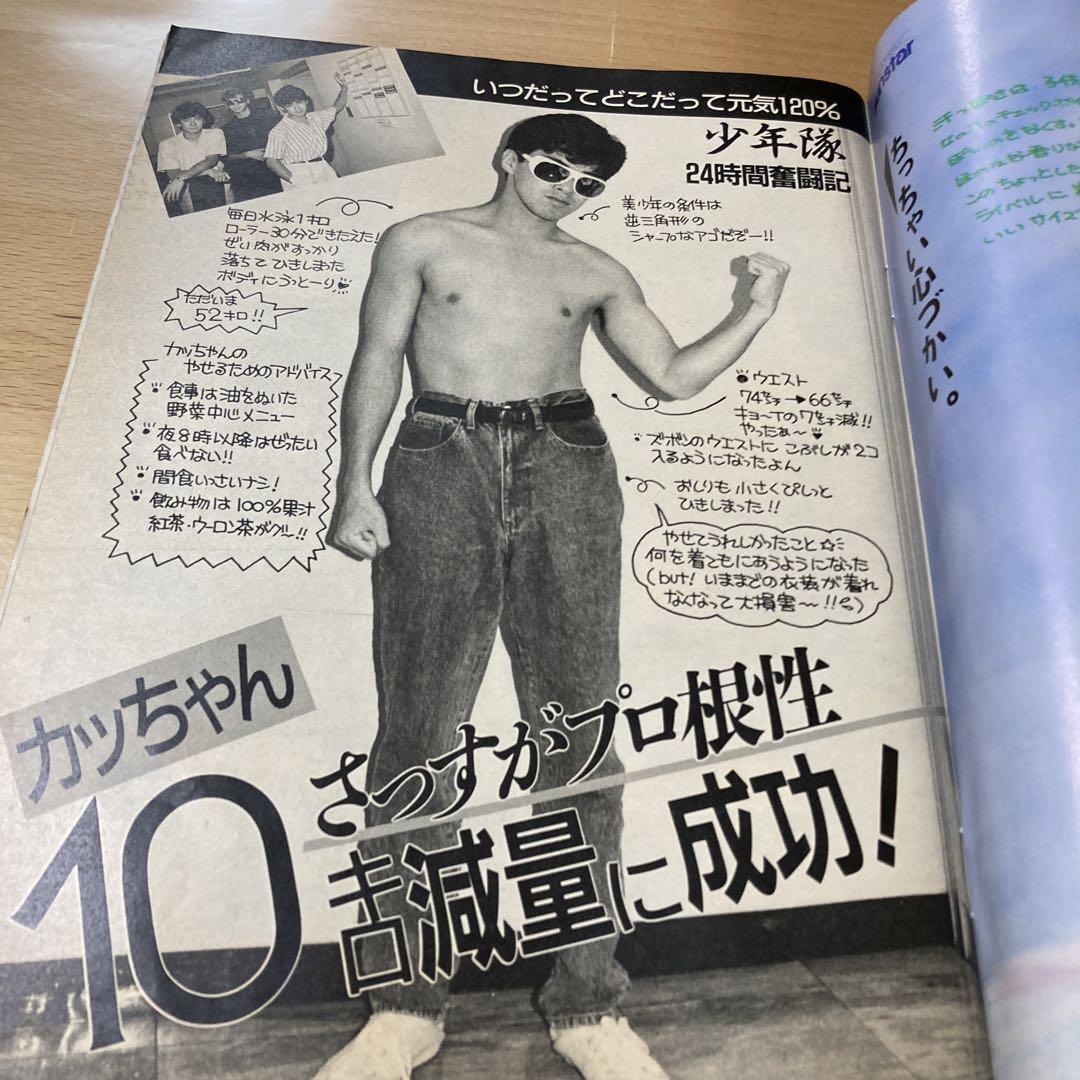 いつだってどこだって元気120%
少年隊
24時間奮闘記
毎日水泳1キロ
ローラー30分できたえた!
ぜい肉がすっかり
落ちてひきしまった
ボディにうっとーり
ただいま
52キロ!!
美少年の条件は
逆三角形の
シャープなアゴだぞー!!
カッちゃんの
やせるためのアドバイス
食事は油をぬいた
野菜中心メニュー
夜8時以降はぜったい
食べない!!
間食いっさいナシ!
飲み物は100%果汁
紅茶・ウーロン茶がグー!!
ウエスト
74㌢→66㌢
キョーイの7㌢減!!
やったぁ〜
ズボンのウエストに こぶしが2コ
入るようになったよん
おしりも小さくぴしっと
ひきしまった!!
やせてうれしかったこと☆
何を着てもにあうようになった
(but! いままでの衣装が着れ
なくなって大損害〜!!)
カッちゃん
さっすがプロ根性
10㌔減量に成功!
star
ちっちゃい心づかい。
ライバルに
いいサイズ